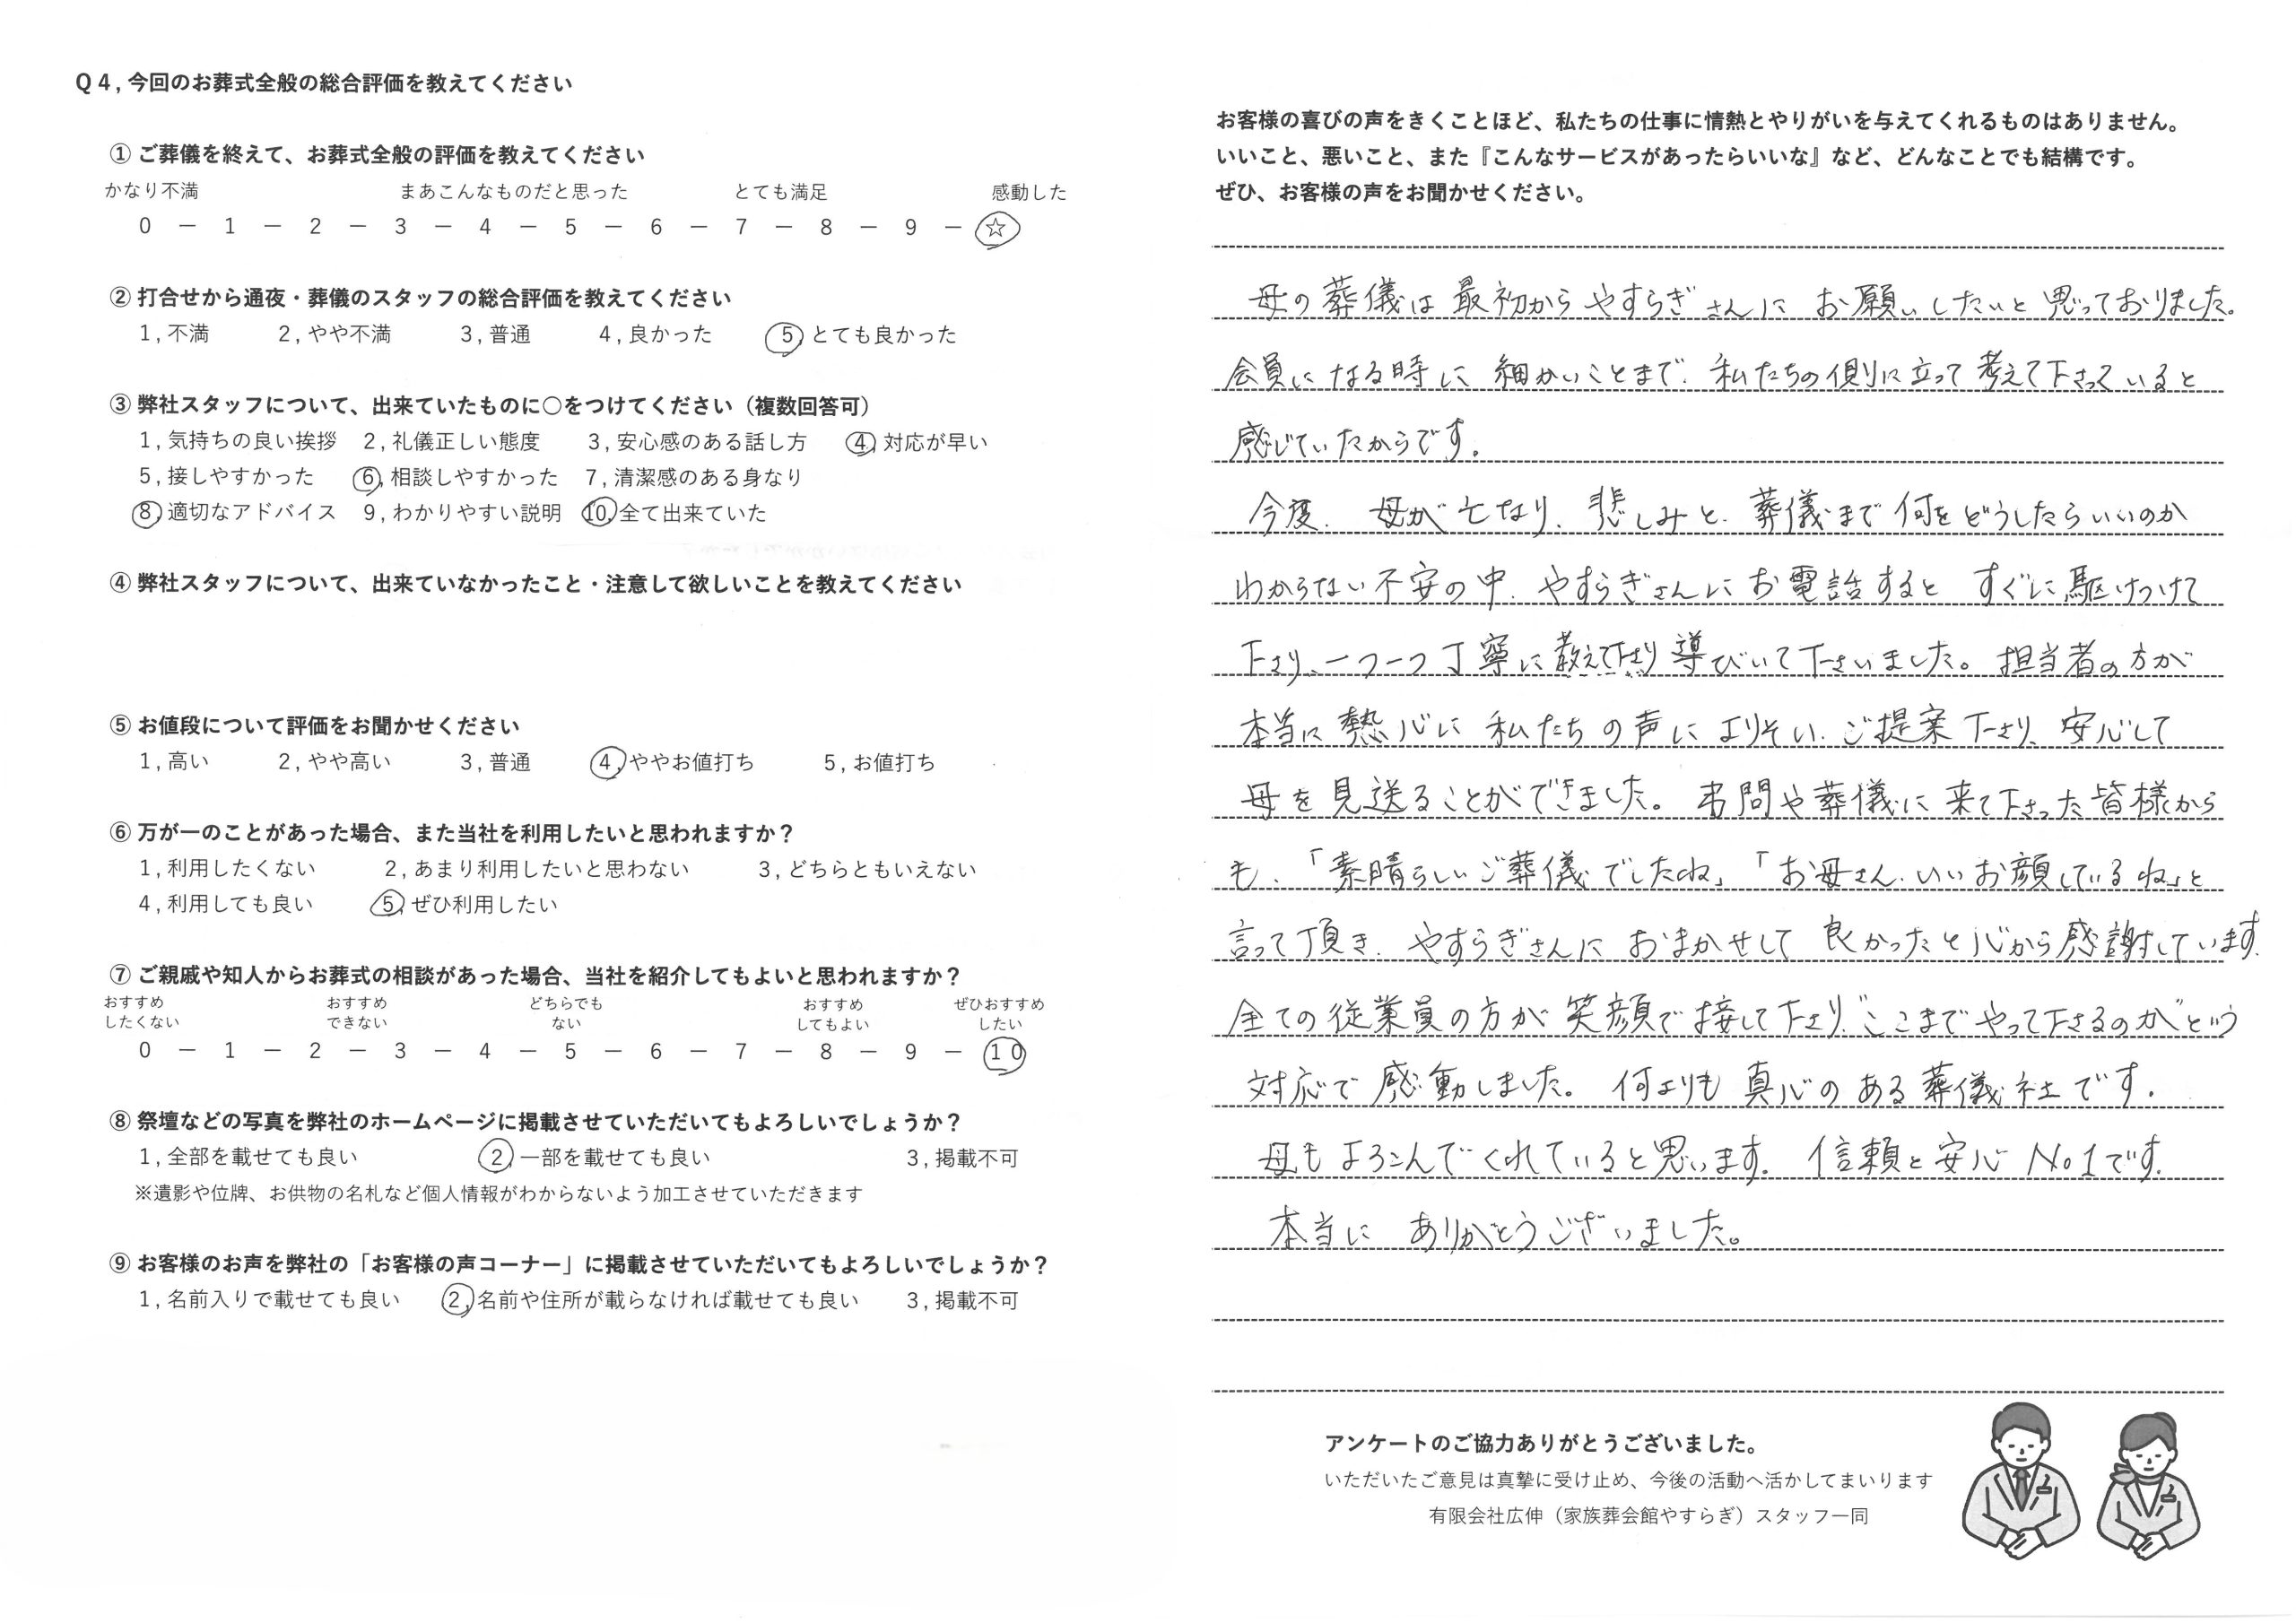 Q4, 今回のお葬式全般の総合評価を教えてください
① ご葬儀を終えて、お葬式全般の評価を教えてください
かなり不満 まあこんなものだと思った とても満足 感動した
0 － 1 － 2 － 3 － 4 － 5 － 6 － 7 － 8 － 9 － ☆
② 打合せから通夜・葬儀のスタッフの総合評価を教えてください
1, 不満 2, やや不満 3, 普通 4, 良かった 5, とても良かった
③ 弊社スタッフについて、出来ていたものに○をつけてください（複数回答可）
1, 気持ちの良い挨拶 2, 礼儀正しい態度 3, 安心感のある話し方 4, 対応が早い
5, 接しやすかった 6, 相談しやすかった 7, 清潔感のある身なり
8, 適切なアドバイス 9, わかりやすい説明 10, 全て出来ていた
④ 弊社スタッフについて、出来ていなかったこと・注意して欲しいことを教えてください
⑤ お値段について評価をお聞かせください
1, 高い 2, やや高い 3, 普通 4, ややお値打ち 5, お値打ち
⑥ 万が一のことがあった場合、また当社を利用したいと思われますか？
1, 利用したくない 2, あまり利用したいと思わない 3, どちらともいえない
4, 利用しても良い 5, ぜひ利用したい
⑦ ご親戚や知人からお葬式の相談があった場合、当社を紹介してもよいと思われますか？
おすすめ おすすめ どちらでも おすすめ ぜひおすすめ
したくない できない ない してもよい したい
0 － 1 － 2 － 3 － 4 － 5 － 6 － 7 － 8 － 9 － 10
⑧ 祭壇などの写真を弊社のホームページに掲載させていただいてもよろしいでしょうか？
1, 全部を載せても良い 2, 一部を載せても良い 3, 掲載不可
※遺影や位牌、お供物の名札など個人情報がわからないよう加工させていただきます
⑨ お客様のお声を弊社の「お客様の声コーナー」に掲載させていただいてもよろしいでしょうか？
1, 名前入りで載せても良い 2, 名前や住所が載らなければ載せても良い 3, 掲載不可
お客様の喜びの声をきくことほど、私たちの仕事に情熱とやりがいを与えてくれるものはありません。
いいこと、悪いこと、また『こんなサービスがあったらいいな』など、どんなことでも結構です。
ぜひ、お客様の声をお聞かせください。
母の葬儀は最初からやすらぎさんにお願いしたいと思っておりました。
会員になる時に細かいことまで、私たちの側に立って考えて下さっていると
感じていたからです。
今度、母が亡なり、悲しみと、葬儀まで何をどうしたらいいのか
わからない不安の中、やすらぎさんにお電話するとすぐに駆けつけて
下さり、一つ一つ丁寧に教えて下さり導びいて下さいました。担当者の方が
本当に熱心に私たちの声によりそい、ご提案下さり、安心して
母を見送ることができました。弔問や葬儀に来て下さった皆様から
も、「素晴らしいご葬儀でしたね」「お母さん、いいお顔しているね」と
言って頂き、やすらぎさんにおまかせして良かったと心から感謝しています。
全ての従業員の方が笑顔で接して下さり、“ここまでやって下さるのか”という
対応で感動しました。何よりも真心のある葬儀社です。
母もよろこんでくれていると思います。信頼と安心No1です。
本当にありがとうございました。
アンケートのご協力ありがとうございました。
いただいたご意見は真摯に受け止め、今後の活動へ活かしてまいります
有限会社広伸（家族葬会館やすらぎ）スタッフ一同